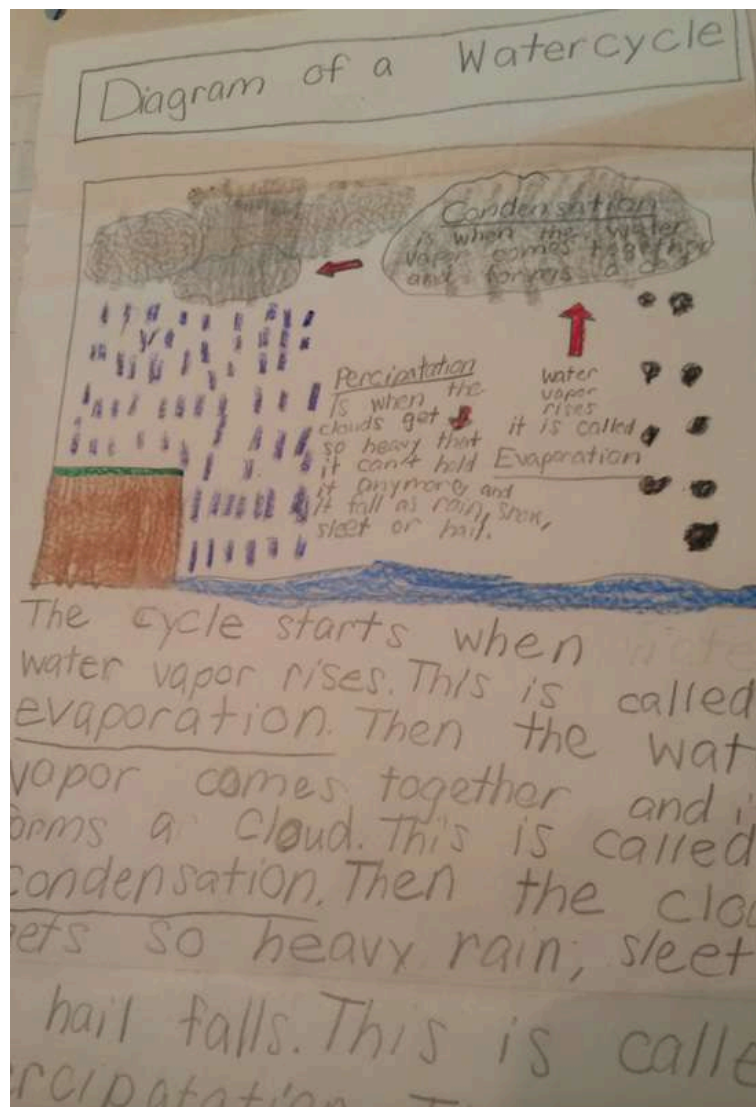 Diagram of a Watercycle
Condensation
is when the water
vapor comes together
and forms a
Percipatation
Is when the
clouds get
so heavy that
it can't hold
it anymore and
it fall as rain, snow,
sleet or hail.
water
vapor
rises
it is called
Evaporation
The cycle starts when
water vapor rises. This is called
evaporation. Then the wat
vapor comes together and i
orms a cloud. This is called
condensation. Then the clou
ets so heavy rain, sleet
hail falls. This is calle
rcipatation.